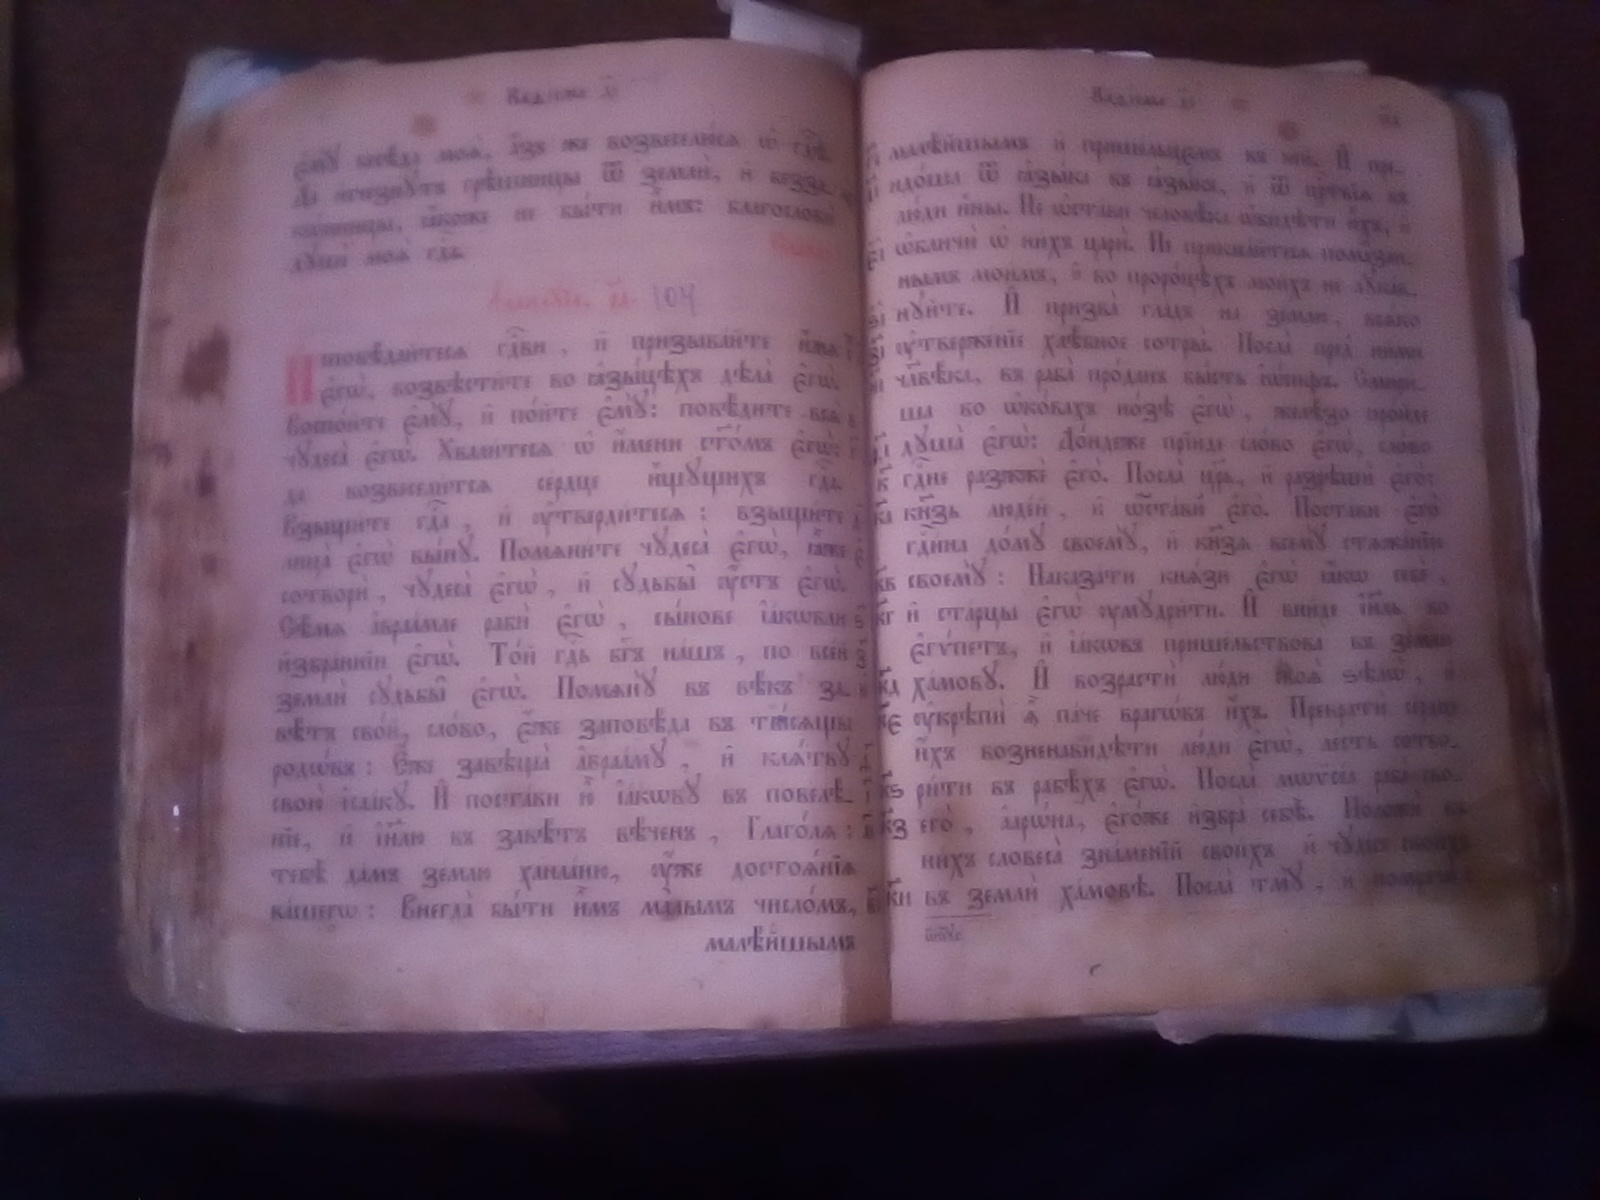 Каѳисма
ємꙋ̀ бесѣ́да моѧ̀, а҆́зъ же возвеселю́сѧ ѡ҆ гдⷭ҇ѣ.
Да и҆сче́знꙋтъ грѣ̑шницы ѿ землѝ, и҆ безза-
кѡ́нницы, ꙗ҆́коже не бы́ти и҆̀мъ: благословѝ
дꙋшѐ моѧ̀ гдⷭ҇а.
104
И҆сповѣ́дайтесѧ гдⷭ҇ви, и҆ призыва́йте и҆́мѧ
є҆гѡ̀, возвѣсти́те во ꙗ҆зы́цѣхъ дѣла̀ є҆гѡ̀.
Воспо́йте є҆мꙋ̀, и҆ по́йте є҆мꙋ̀: повѣ́дите всѧ̑
чꙋдеса̀ є҆гѡ̀. Хвали́тесѧ ѡ҆ и҆́мени ст҃о́мъ є҆гѡ̀:
да возвесели́тсѧ се́рдце и҆́щꙋщихъ гдⷭ҇а.
Взыщи́те гдⷭ҇а, и҆ ᲂу҆тверди́тесѧ: взыщи́те
лица̀ є҆гѡ̀ вы́нꙋ. Помѧни́те чꙋдеса̀ є҆гѡ̀, ꙗ҆̀же
сотворѝ, чꙋдеса̀ є҆гѡ̀, и҆ сꙋдьбы̑ ᲂу҆́стъ є҆гѡ̀.
Сѣ́мѧ а҆враа́мле рабѝ є҆гѡ̀, сы́нове і҆а́кѡвли
и҆збра́ннїи є҆гѡ̀. То́й гдⷭ҇ь бг҃ъ на́шъ, по все́й
землѝ сꙋдьбы̑ є҆гѡ̀. Помѧнꙋ̀ въ вѣ́къ за-
вѣ́тъ сво́й, сло́во, є҆́же заповѣ́да въ ты́сѧщы
родѡ́въ: Є҆́же завѣща̀ а҆враа́мꙋ, и҆ клѧ́твꙋ
свою̀ і҆саа́кꙋ. И҆ поста́ви ю҆̀ і҆а́кѡвꙋ въ повелѣ́-
нїе, и҆ і҆и҃лю въ завѣ́тъ вѣ́ченъ, Глаго́лѧ:
тебѣ̀ да́мъ зе́млю ханаа́ню, ᲂу҆́же достоѧ́нїѧ
ва́шегѡ: Внегда̀ бы́ти и҆̀мъ ма̑лымъ число́мъ,
малѣ́йшымъ
Каѳисма
малѣ́йшымъ и҆ пришє́льцємъ въ не́й. И҆ пре-
идо́ша ѿ ꙗ҆зы́ка въ ꙗ҆зы́къ, и҆ ѿ црⷭ҇твїѧ въ
лю́ди и҆́ны. Не ѡ҆ста́ви человѣ́ка ѡ҆би́дѣти и҆̀хъ, и҆
ѡ҆бличѝ ѡ҆ ни́хъ цари̑. Не прикаса́йтесѧ пома̑зан-
нымъ мои̑мъ, и҆ во проро́цѣхъ мои́хъ не лꙋка́в-
нꙋйте. И҆ призва̀ гла́дъ на зе́млю, всѧ́ко
ᲂу҆твержде́нїе хлѣ́бное сотрѝ. Посла̀ пред̾ ни́ми
чл҃вѣ́ка, въ раба̀ про́данъ бы́сть і҆ѡ́сифъ. Смири́-
ша во ѡ҆ко́вахъ но́зѣ є҆гѡ̀, желѣ́зо про́йде
дꙋша̀ є҆гѡ̀: До́ндеже прїи́де сло́во є҆гѡ̀, сло́во
гдⷭ҇не разжжѐ є҆го̀. Посла̀ цр҃ь, и҆ разрѣшѝ є҆го̀:
кн҃зь люде́й, и҆ ѡ҆ста́ви є҆го̀. Поста́ви є҆го̀
господи́на до́мꙋ своемꙋ̀, и҆ кн҃зѧ всемꙋ̀ стѧжа́нїю
своемꙋ̀: Наказа́ти кнѧ̑зи є҆гѡ̀ ꙗ҆́кѡ себѐ,
и҆ ста́рцы є҆гѡ̀ ᲂу҆мꙋдри́ти. И҆ вни́де і҆и҃ль во
є҆гѵ́петъ, и҆ і҆а́кѡвъ прише́льствова въ зе́млю
ха́мовꙋ. И҆ возрастѝ лю́ди своѧ̑ ѕѣлѡ̀, и҆
ᲂу҆крѣпѝ ѧ҆̀ па́че врагѡ́въ и҆́хъ. Превратѝ се́рдце
и҆́хъ возненави́дѣти лю́ди є҆гѡ̀, ле́сть сотво-
ри́ти въ рабѣ́хъ є҆гѡ̀. Посла̀ мѡѷсе́а раба̀ сво-
его̀, а҆арѡ́на, є҆го́же и҆збра̀ себѣ̀. Положѝ въ
ни́хъ словеса̀ зна́менїй свои́хъ и҆ чꙋде́съ свои́хъ
въ землѝ ха́мовѣ. Посла̀ тмꙋ̀, и҆ помрачѝ: